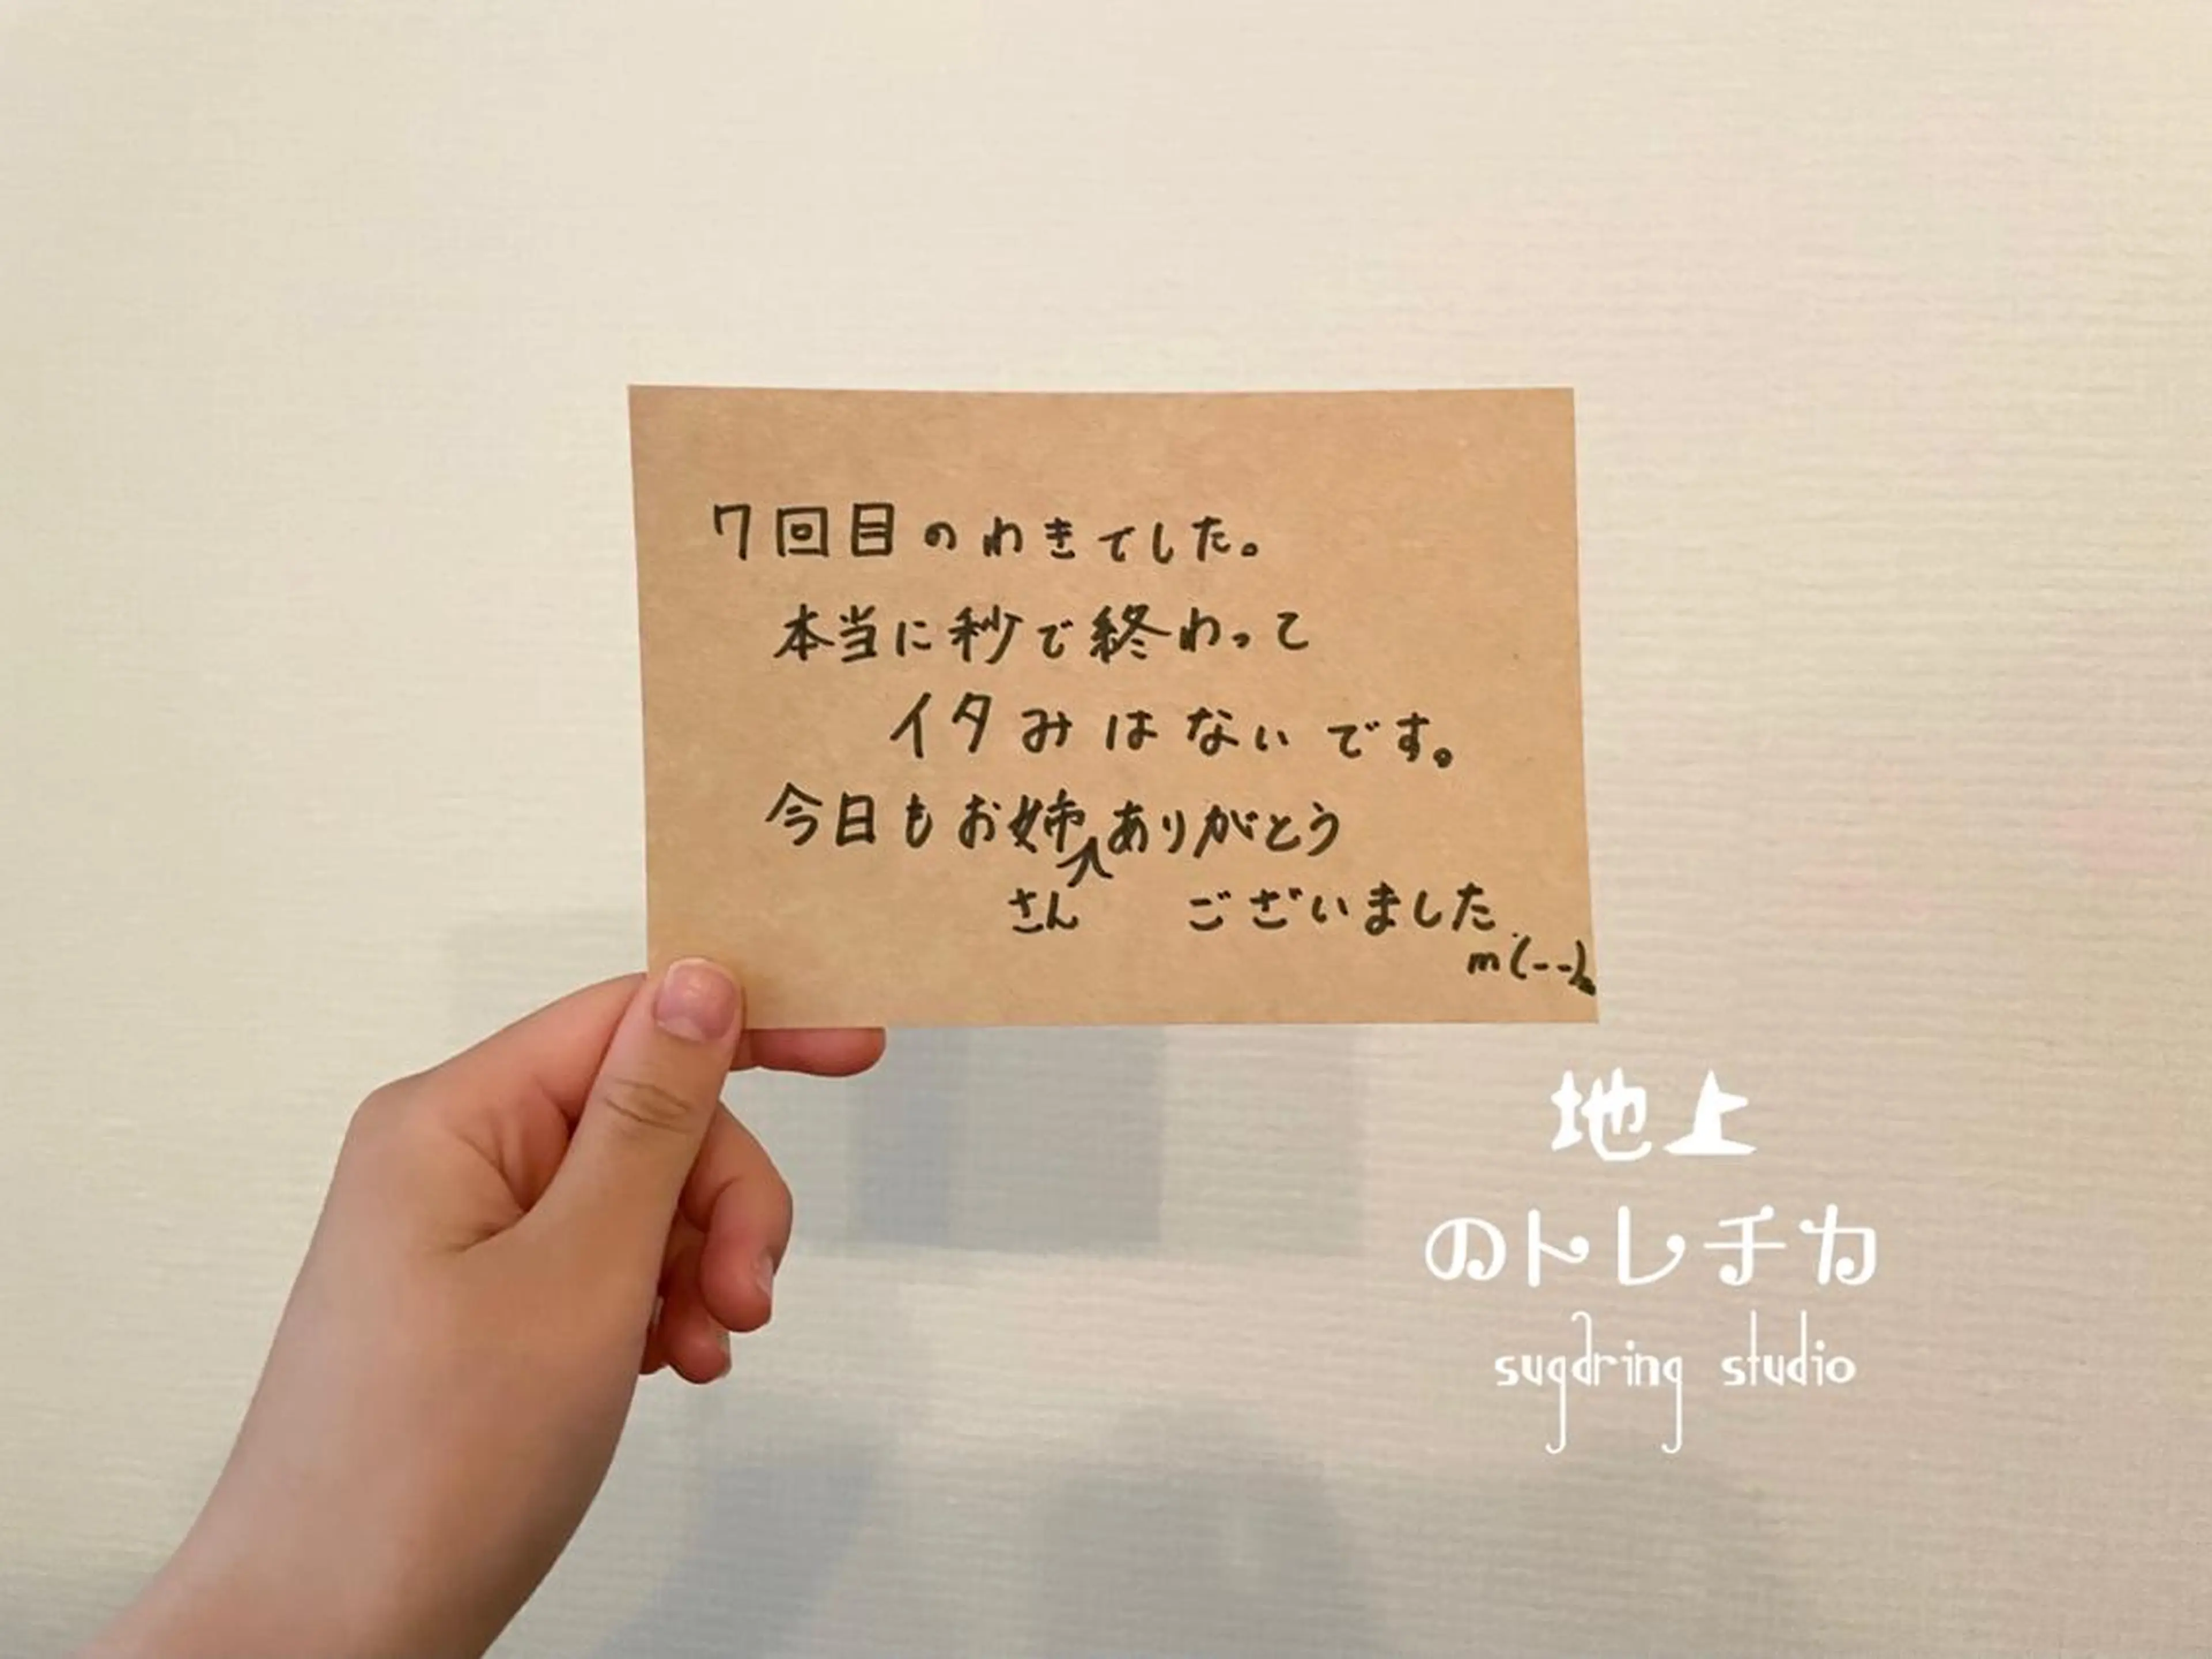 7回目のわきでした。
本当に秒で終わって
イタみはないです。
今日もお姉さんありがとう
ございました
m(--)m
地上
のトレチカ
sugaring studio